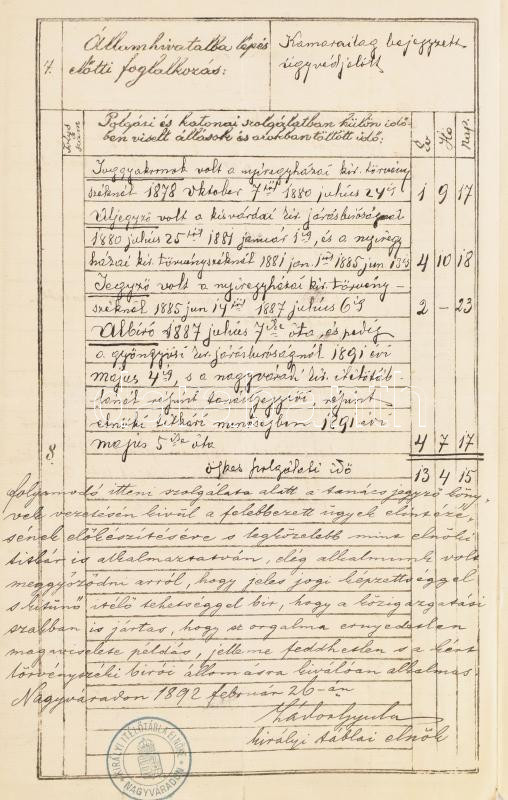 7. Államhivatalba lépés Kamarailag bejegyzett
előtti foglalkozás: ügyvédjelölt
Polgári és katonai szolgálatban külön idő-
ben viselt állások és azokban töltött idő: Év Hó Nap.
Joggyakornok volt a nyíregyházai kir. törvény
széknél 1878 Oktober 7től 1880 julius 24ig 1 9 17
Aljegyző volt a kisvárdai kir. járásbiróságnál
1880 julius 25től 1881 január 1ig, és a nyiregy
házai kir. törvényszéknél 1881 jan. 1től 1885 jun 13ig 4 10 18
Jegyző volt a nyíregyházai kir. törvény-
széknél 1885 jun 14től 1887 julius 6ig 2 – 23
Albiró 1887 julius 7ike óta, és pedig
a gyöngyösi kir. járásbiróságnál 1891 évi
május 4ig, s a nagyváradi kir. itélőtáb
lánál részint tanácsjegyzői, részint
elnöki titkári minőségben 1891 évi
május 5ike óta 4 7 17
8. Összes szolgálati idő 13 4 15
folyamodó itteni szolgálata alatt a tanácsjegyző köny-
vek vezetésén kivül a felebbezett ügyek elintézé-
sének előkészitésére s legközelebb mint elnöki
titkár is alkalmaztatván, elég alkalmunk volt
meggyőződni arról, hogy jeles jogi képzettséggel
s kitünő itélő tehetséggel bir, hogy a közigazgatási
szakban is jártas, hogy szorgalma ernyedetlen
magaviselete példás, jelleme feddhetlen s a kért
törvényszéki birói állomásra kiválóan alkalmas.
Nagyváradon 1892 február 26-án
Gyula
királyi táblai elnök
KIRÁLYI ITÉLŐTÁBLA ELNÖKE
NAGYVÁRADON